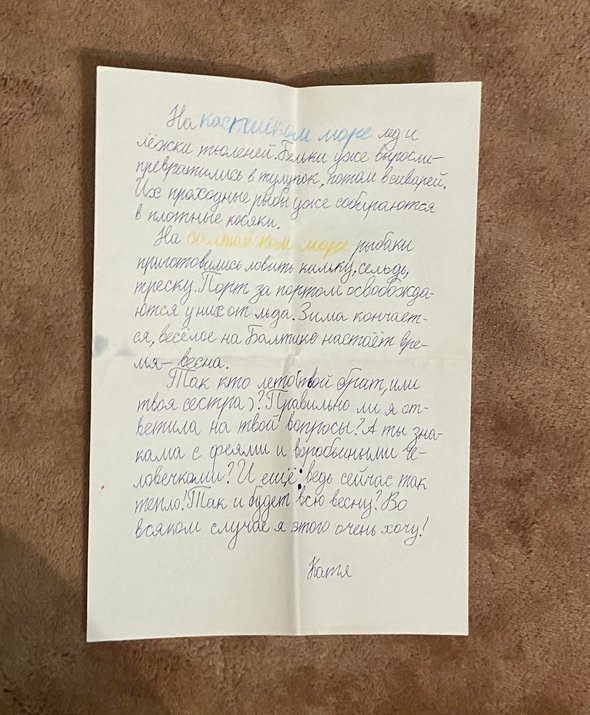 На каспийком море лёд и
лёжки тюленей. Бельки уже выросли-
превратились в тулупок, потом в сиварей.
Их проходные рыбы уже собираются
в плотные косяки.
На балтийском море рыбаки
приготовились ловить кильку, сельдь,
треску. Порт за портом освобожда-
ются у них от льда. Зима кончает-
ся, весёлое на Балтике настаёт вре-
мя- весна.
Так кто лето(твой брат, или
твоя сестра)? Правильно ли я от-
ветила на твой вопросы? А ты зна-
кама с феями и воробьиными че-
ловечками? И ещё: ведь сейчас так
тепло! Так и будет всю весну? Во
всяком случае я этого очень хочу!
Катя